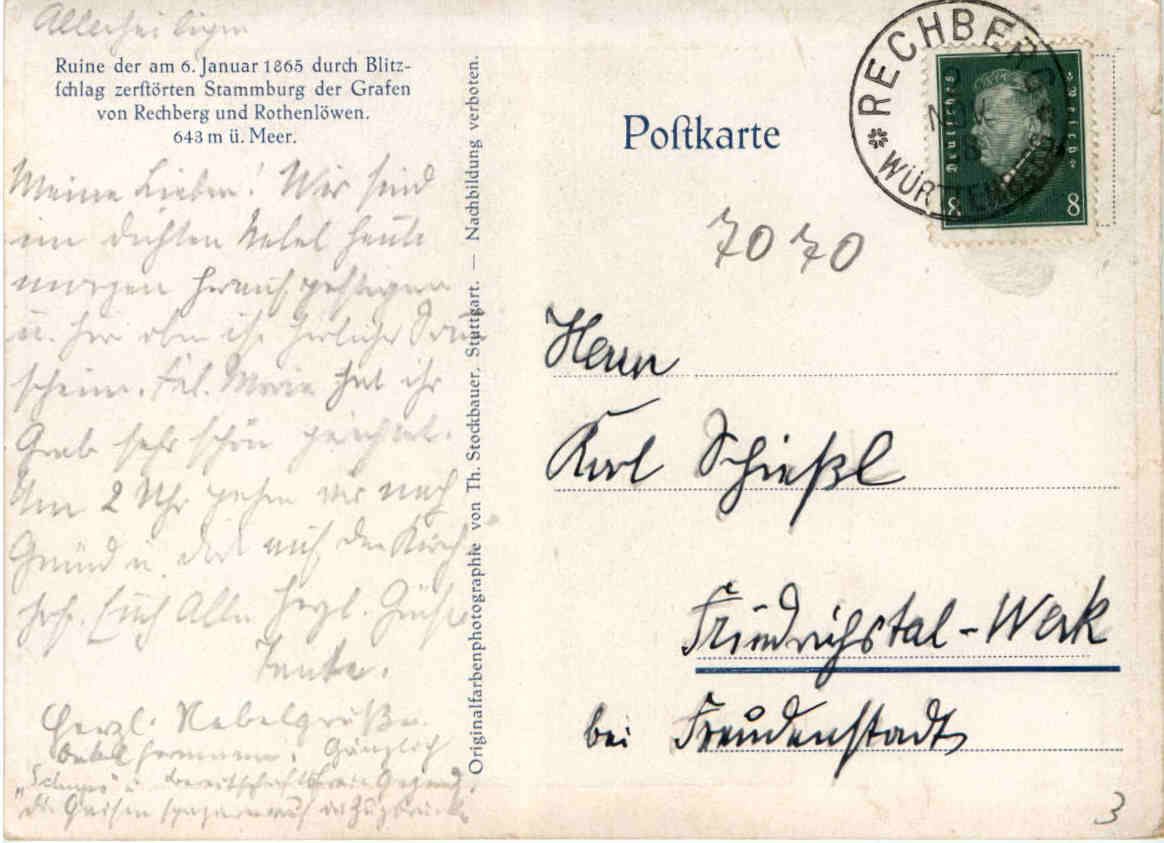 Allerheiligen
Ruine der am 6. Januar 1865 durch Blitz-
ſchlag zerſtörten Stammburg der Grafen
von Rechberg und Rothenlöwen.
643 m ü. Meer.
Meine Lieben! Wir sind
im dichten Nebel heute
morgen herauf gestiegen
u. hier oben ist herrlicher Sonn
schein. Frl. Marie hat ihr
Grab sehr schön gerichtet.
Um 2 Uhr gehen wir nach
Gmünd u. dort auf den Kirch
hof. Euch Allen herzl. Grüße
Tante.
Herzl. Nebelgrüße
Onkel Hermann. Gänzlich
u. bereitschaftsfreie Gegend,
die
Originalfarbenphotographie von Th. Stockbauer, Stuttgart. — Nachbildung verboten.
Poſtkarte
RECHBERG
WÜRTTEMBERG
Deutsches Reich
8 8
7070
Herrn
Karl Schießl
Friedrichstal-Werk
bei Freudenstadt
3